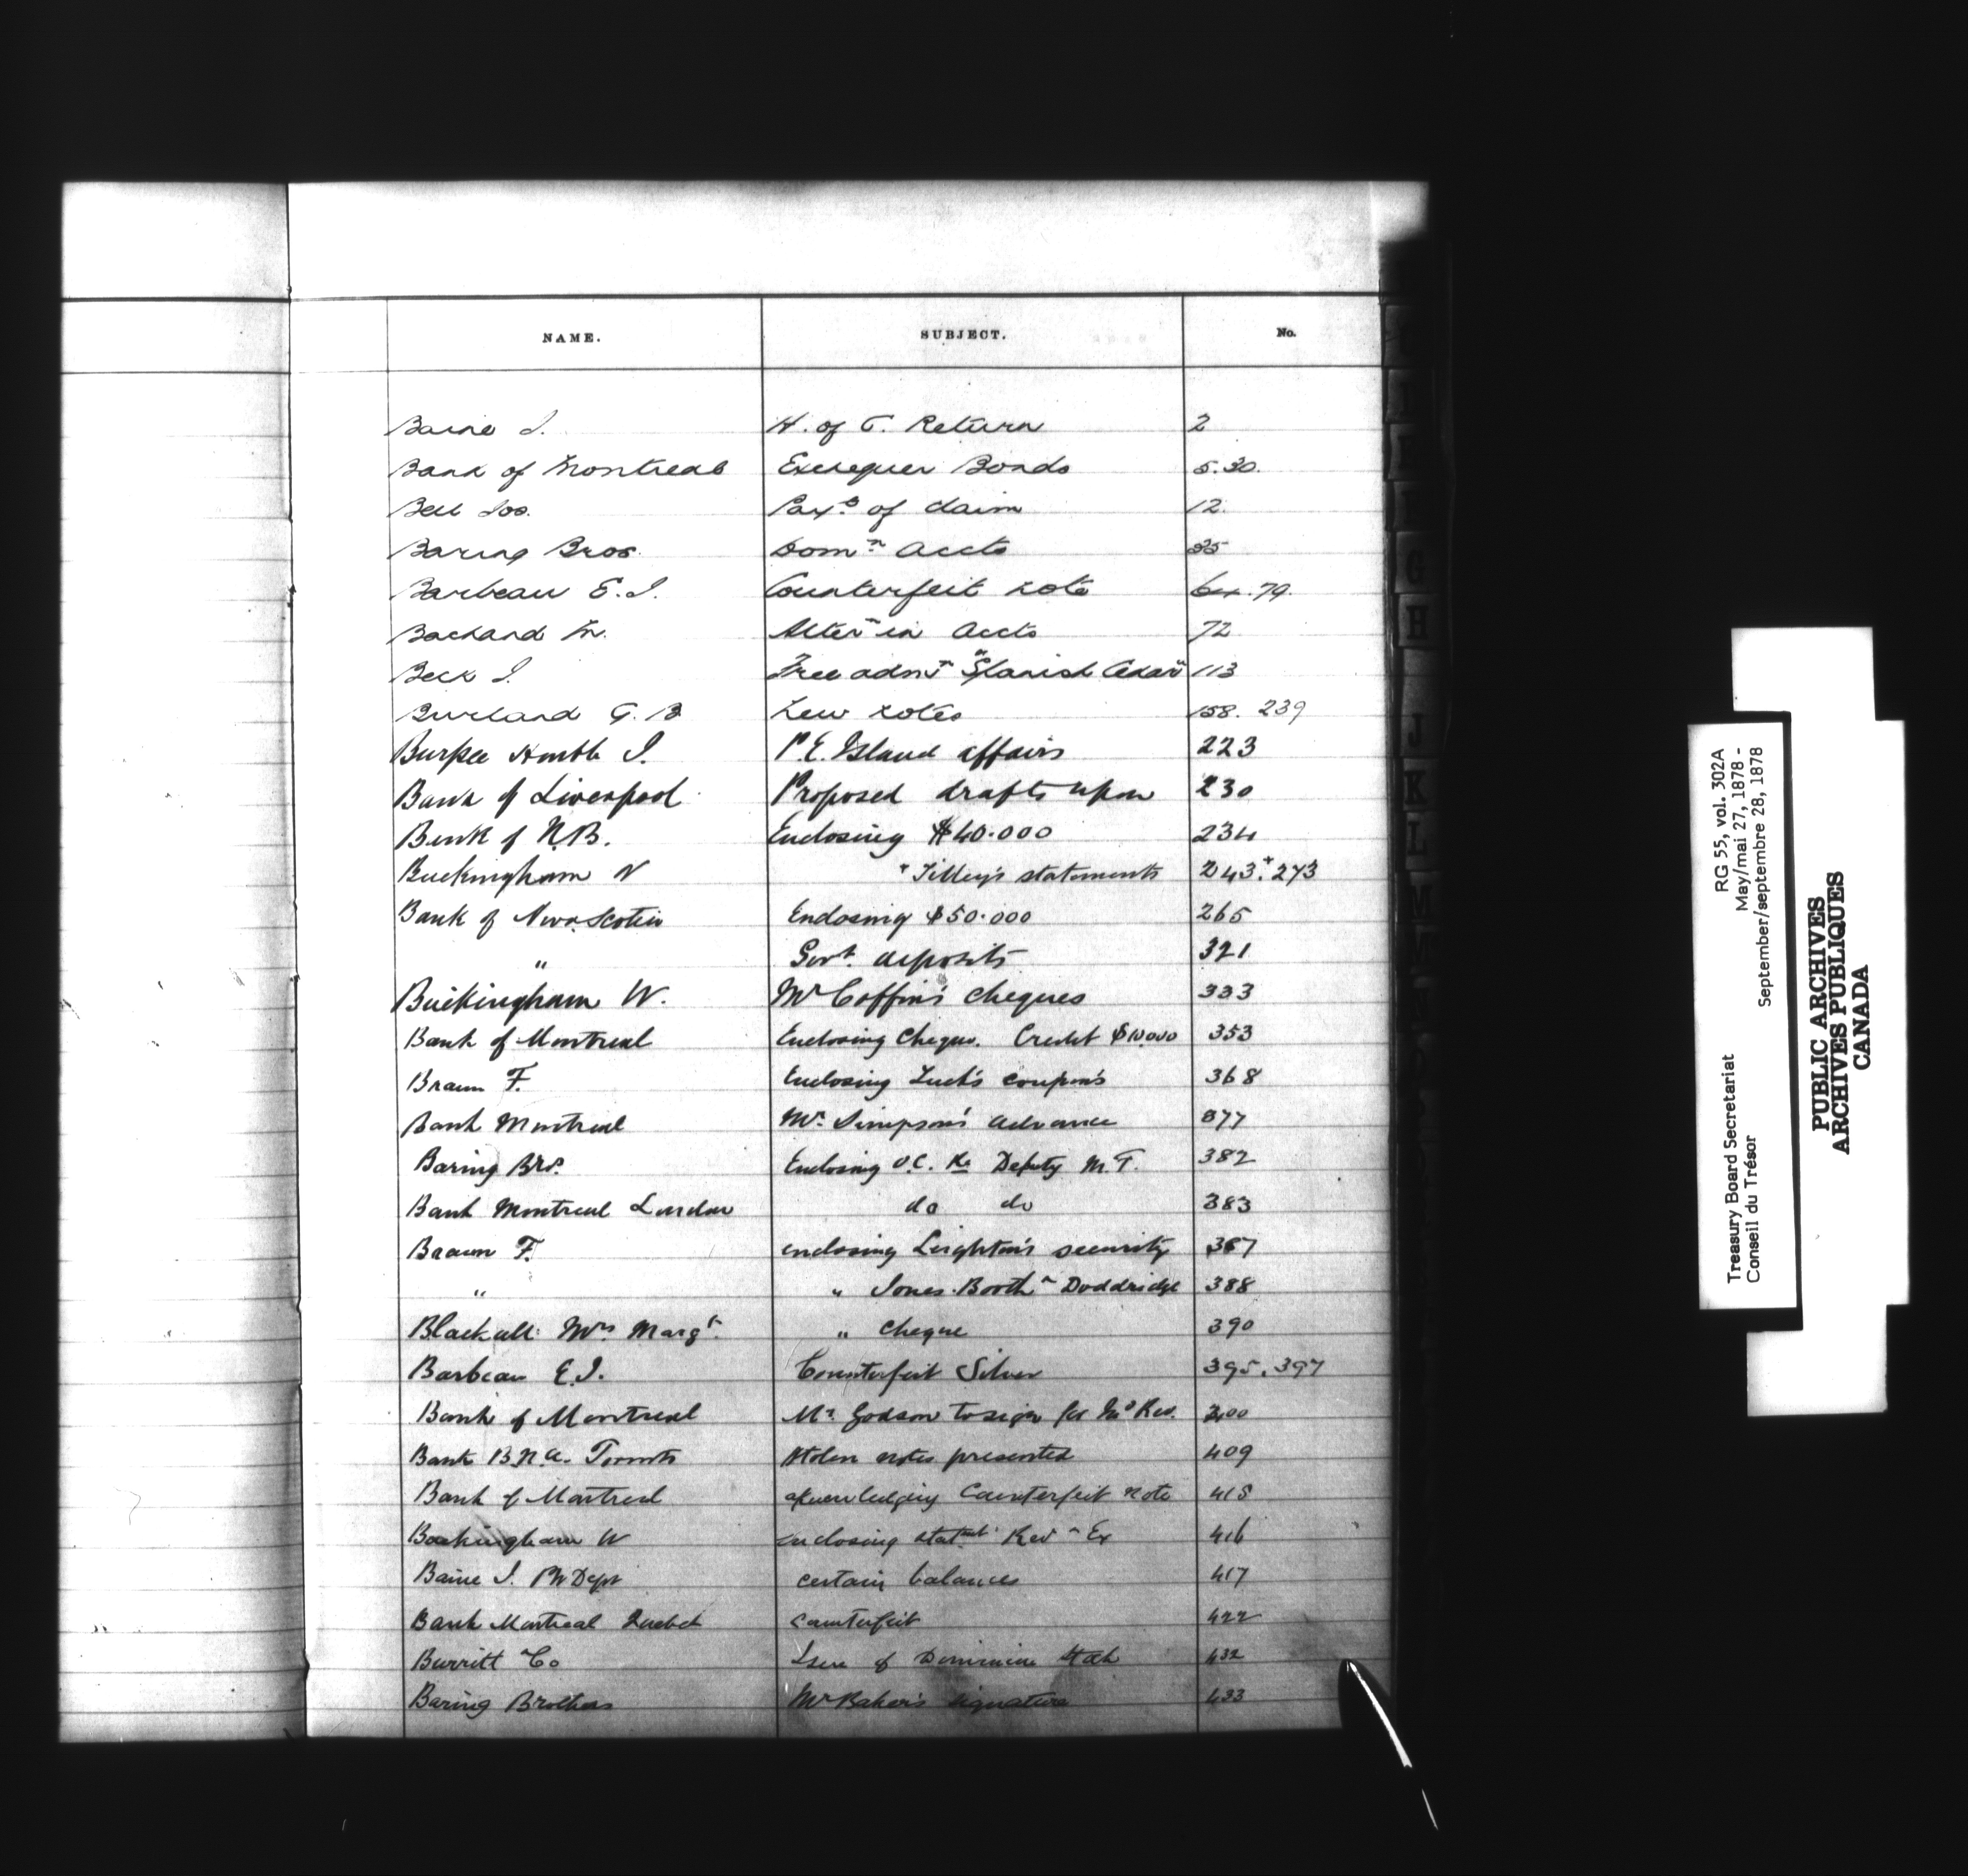 NAME. SUBJECT. No.
Baine J. H. of C. Return 2
Bank of Montreal Exchequer Bonds 5.30.
Bell Jos. Paytt of claim 12
Baring Bros. Domn Accts 35
Barbeau E.J. Counterfeit note 64.79.
Bachand M. Altern in Accts 72
Beck J. Free admn "Spanish Cedar" 113
Burland G. B New notes 158. 239
Burpee Honble I. P.E. Island affairs 223
Bank of Liverpool Proposed drafts upon 230
Bank of N.B. Enclosing $40.000 234
Buckingham W Tilley's statements 243.+273
Bank of Nova Scotia Enclosing $50.000 265
" Govt. deposits 321
Buckingham W. Mr Coffin's cheques 333
Bank of Montreal Enclosing Cheque. Credit $10,000 353
Braun F. Enclosing coupons 368
Bank Montreal Mr. Simpson's advance 377
Baring Bros. Enclosing O.C. Re Deputy M.F. 382
Bank Montreal London do do 383
Braun F. enclosing Leighton's security 387
" " Jones. Booth Doddridge 388
Blackall Mrs Margt. " Cheque 390
Barbeau E.J. Counterfeit Silver 395.397
Bank of Montreal Mr. Godson to sign for 400
Bank B.N.A. Toronto Stolen notes presented 409
Bank of Montreal acknowledging Counterfeit Note 415
Buckingham W enclosing Rev Ex 416
Baine J. PW Dept certain balances 417
Bank Montreal Quebec counterfeit 422
Burritt Co Issue of Dominion Stock 432
Baring Brothers Mr Baker's signature 433
G
H
J
K
L
M
Treasury Board Secretariat RG 55, vol. 302A
Conseil du Trésor May/mai 27, 1878 -
September/septembre 28, 1878
PUBLIC ARCHIVES
ARCHIVES PUBLIQUES
CANADA